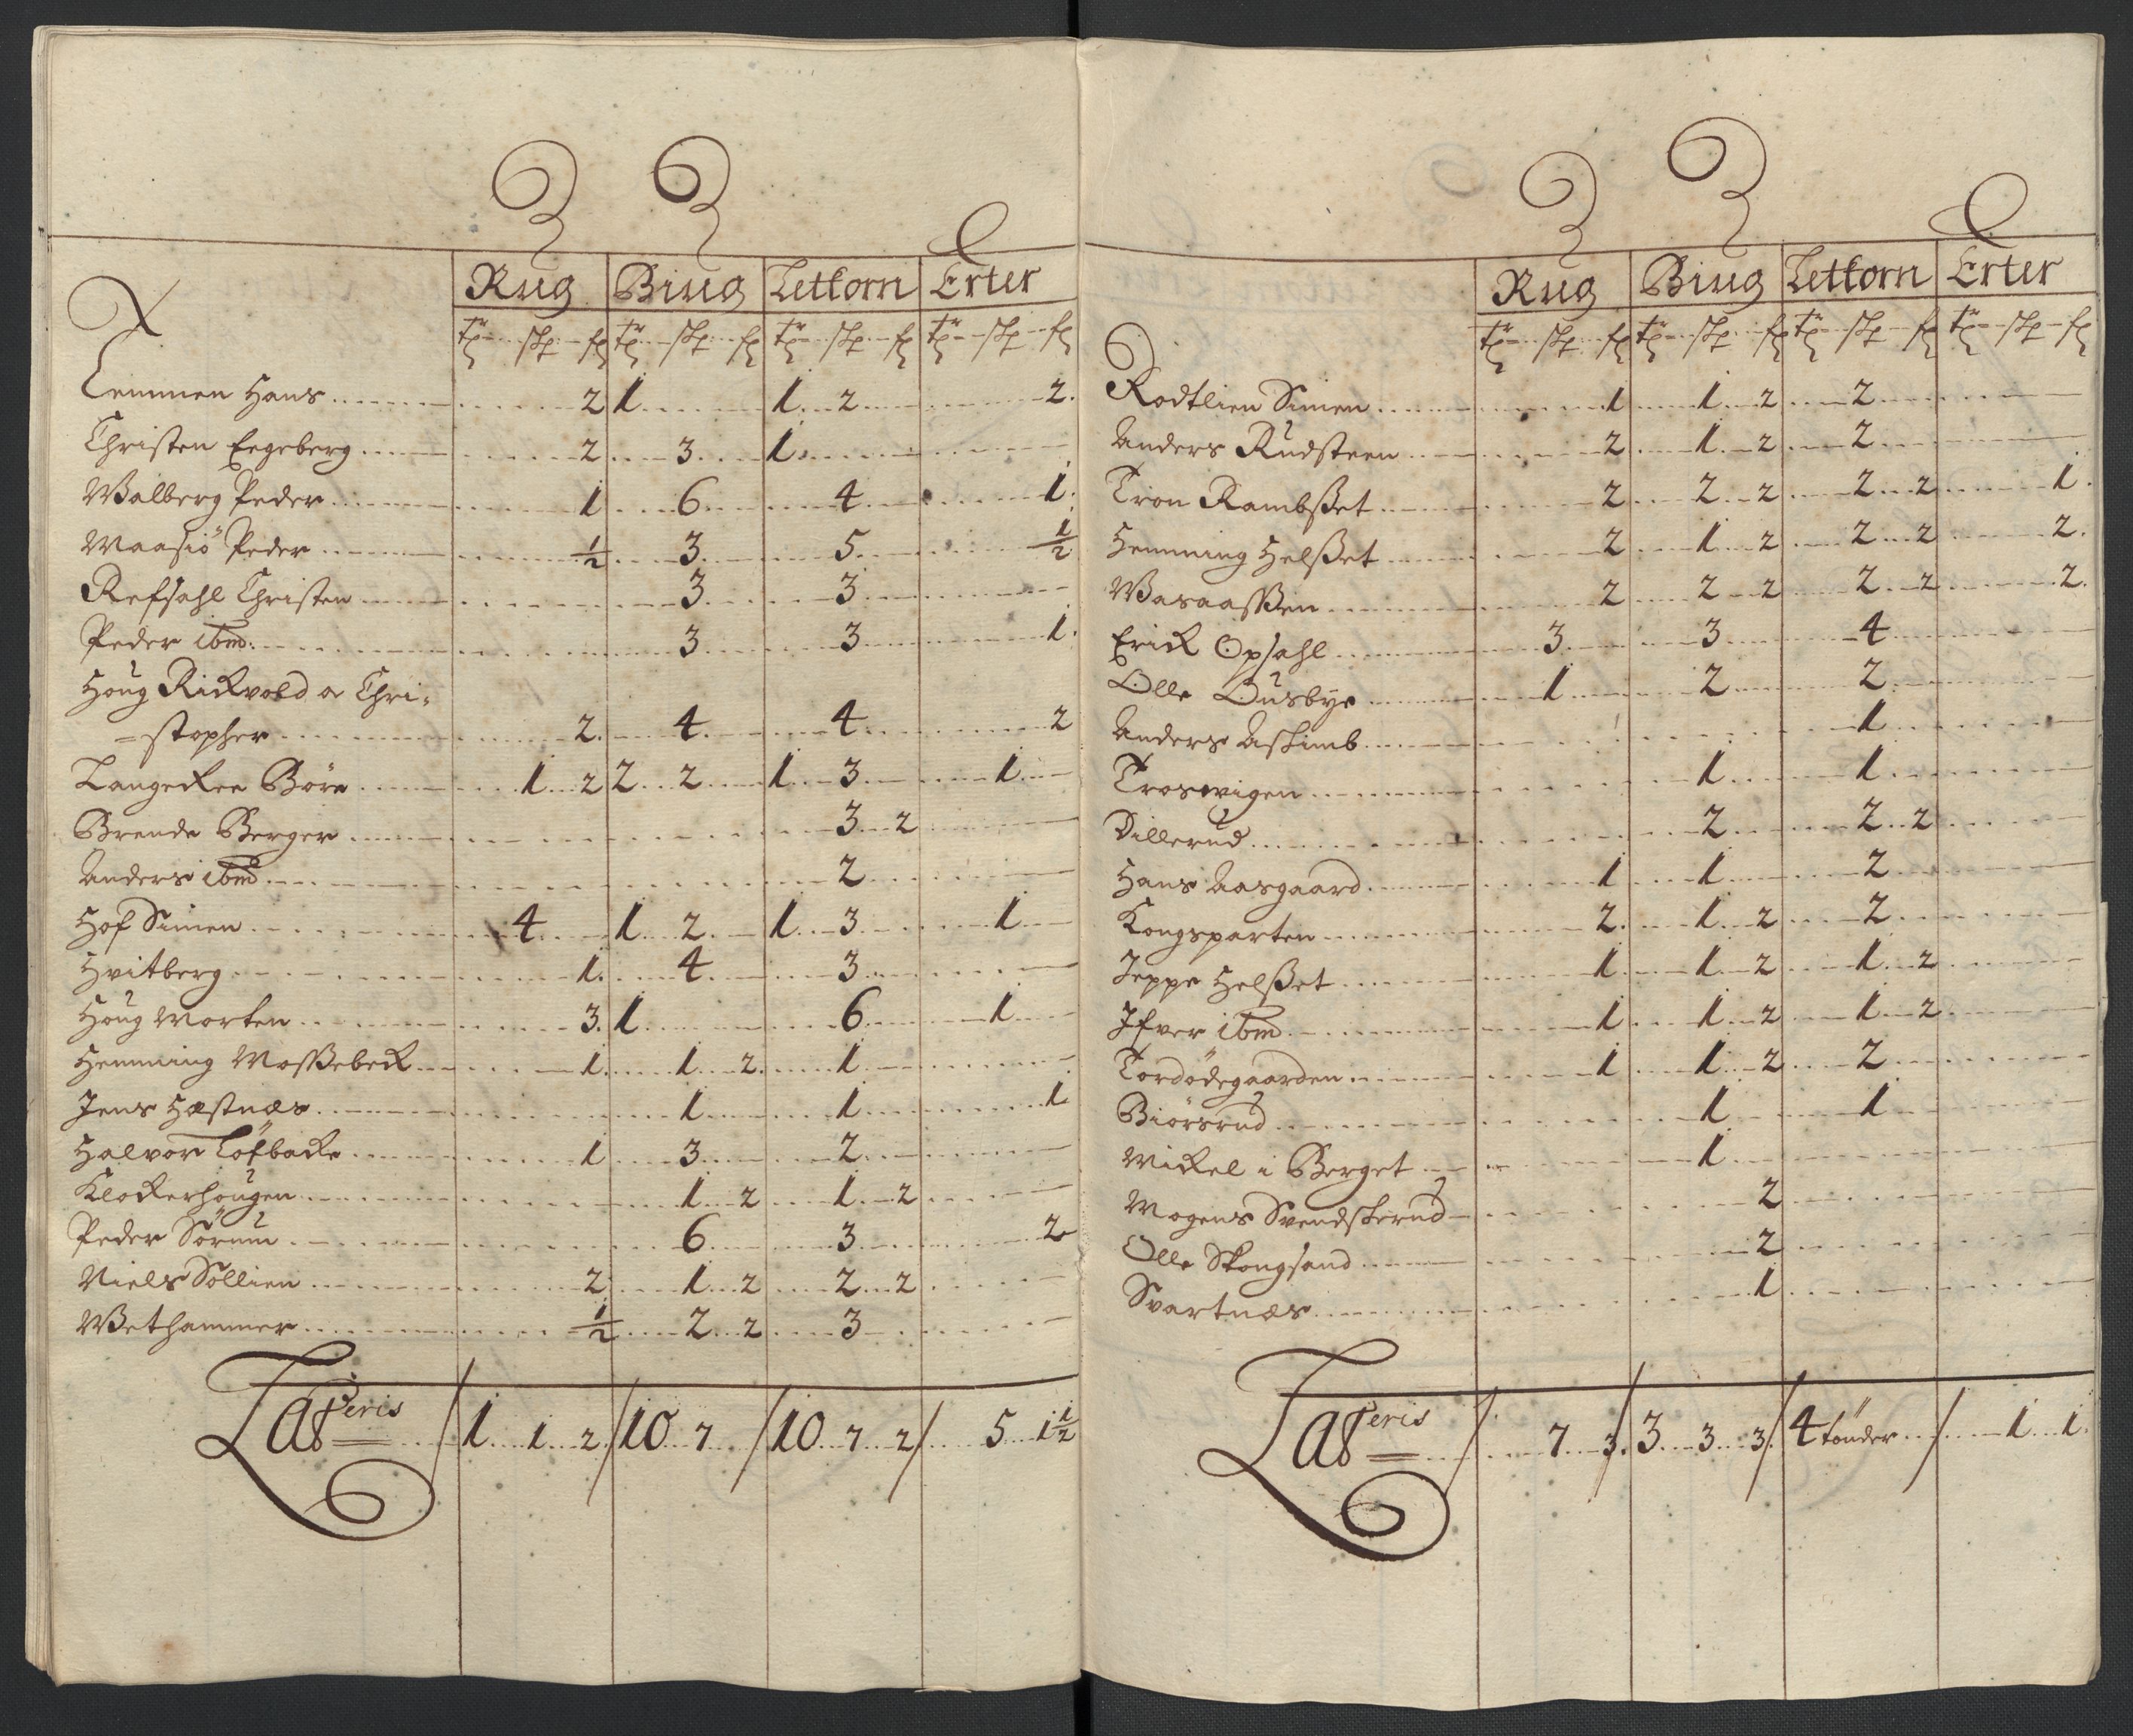 Rug Biug Lettorn Erter
tr skp fl tr skp fl tr skp fl tr skp fl
Lemmen Hans 2 1 1 2 2
Christen Engeberg 2 3 1
Walberg Peder 1 6 4 1
Maasiö Peder 1/2 3 5 1/2
Refsahl Christen 3 3
Peder ibm 3 3 1
Houg Rickvold or Chri-
=stopher 2 4 4 2
Langeckre Börre 1 2 2 2 1 3 1
Brende Berger 3 2
Anders ibm 2
Hof Simen 4 1 2 1 3 1
Hvitberg 1 4 3
Houg Morten 3 1 6 1
Hemming Mosßebeck 1 1 2 1
Jens Hæstnæs 1 1 1
Halvor Löfbacke 1 3 2
Klockerhougen 1 2 1 2
Peder Sörum 6 3 2
Niels Söllien 2 1 2 2 2
Wethammer 1/2 2 2 3
Lateris 1 1 2 / 10 7 / 10 7 2 / 5 1 1/2
Rug Biug Lettorn Erter
tr skp fl tr skp fl tr skp fl tr skp fl
Rodtlien Simen 1 1 2 2
Anders Rudsteen 2 1 2 2
Tron Rambsßet 2 2 2 2 2 1
Hemming Helsßet 2 1 2 2 2 2
Wasaasßen 2 2 2 2 2 2
Erick Opsahl 3 3 4
Olle Ousbye 1 2 2
Anders Askimb 1
Trosvigen 1 1
Dillerud 2 2 2
Hans Aasgaard 1 1 2
Kongsparten 2 1 2 2
Jeppe Helsßet 1 1 2 1 2
Ifver ibm 1 1 2 1 2
Tordödegaarden 1 1 2 2
Biörsrud 1 1
Mickel i Berget 1
Mogens Svendskerud 2
Olle Skongsand 2
Svartnæs 1
Lateris / 7 3 / 3 3 3 / 4 tönder / 1 1